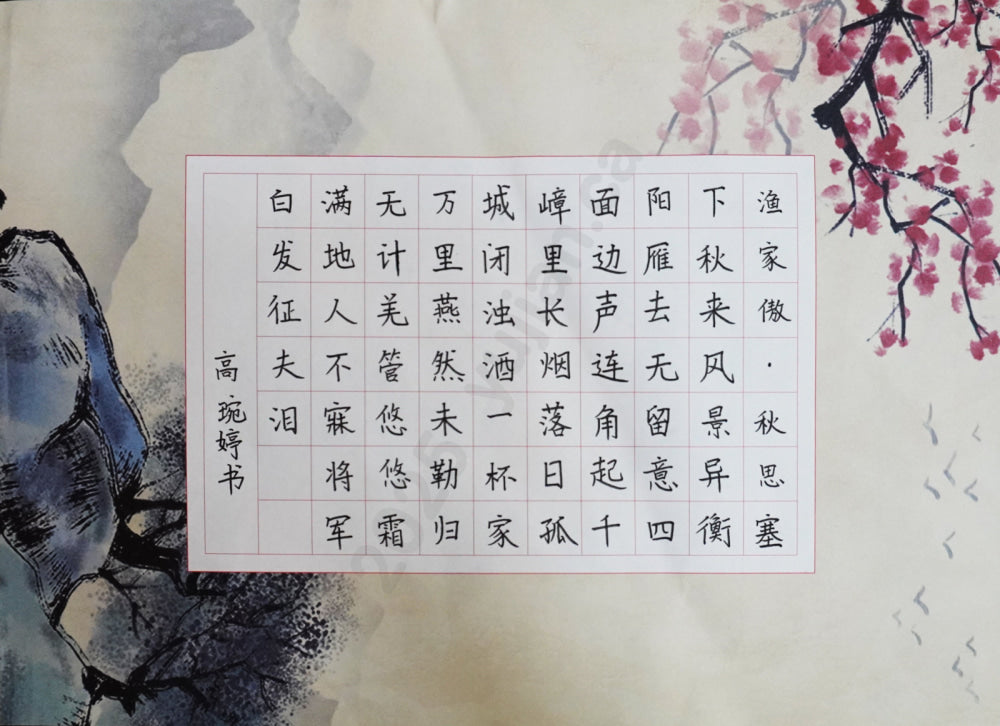 渔家傲·秋思塞
下秋来风景异衡
阳雁去无留意四
面边声连角起千
嶂里长烟落日孤
城闭浊酒一杯家
万里燕然未勒归
无计羌管悠悠霜
满地人不寐将军
白发征夫泪
高琬婷书